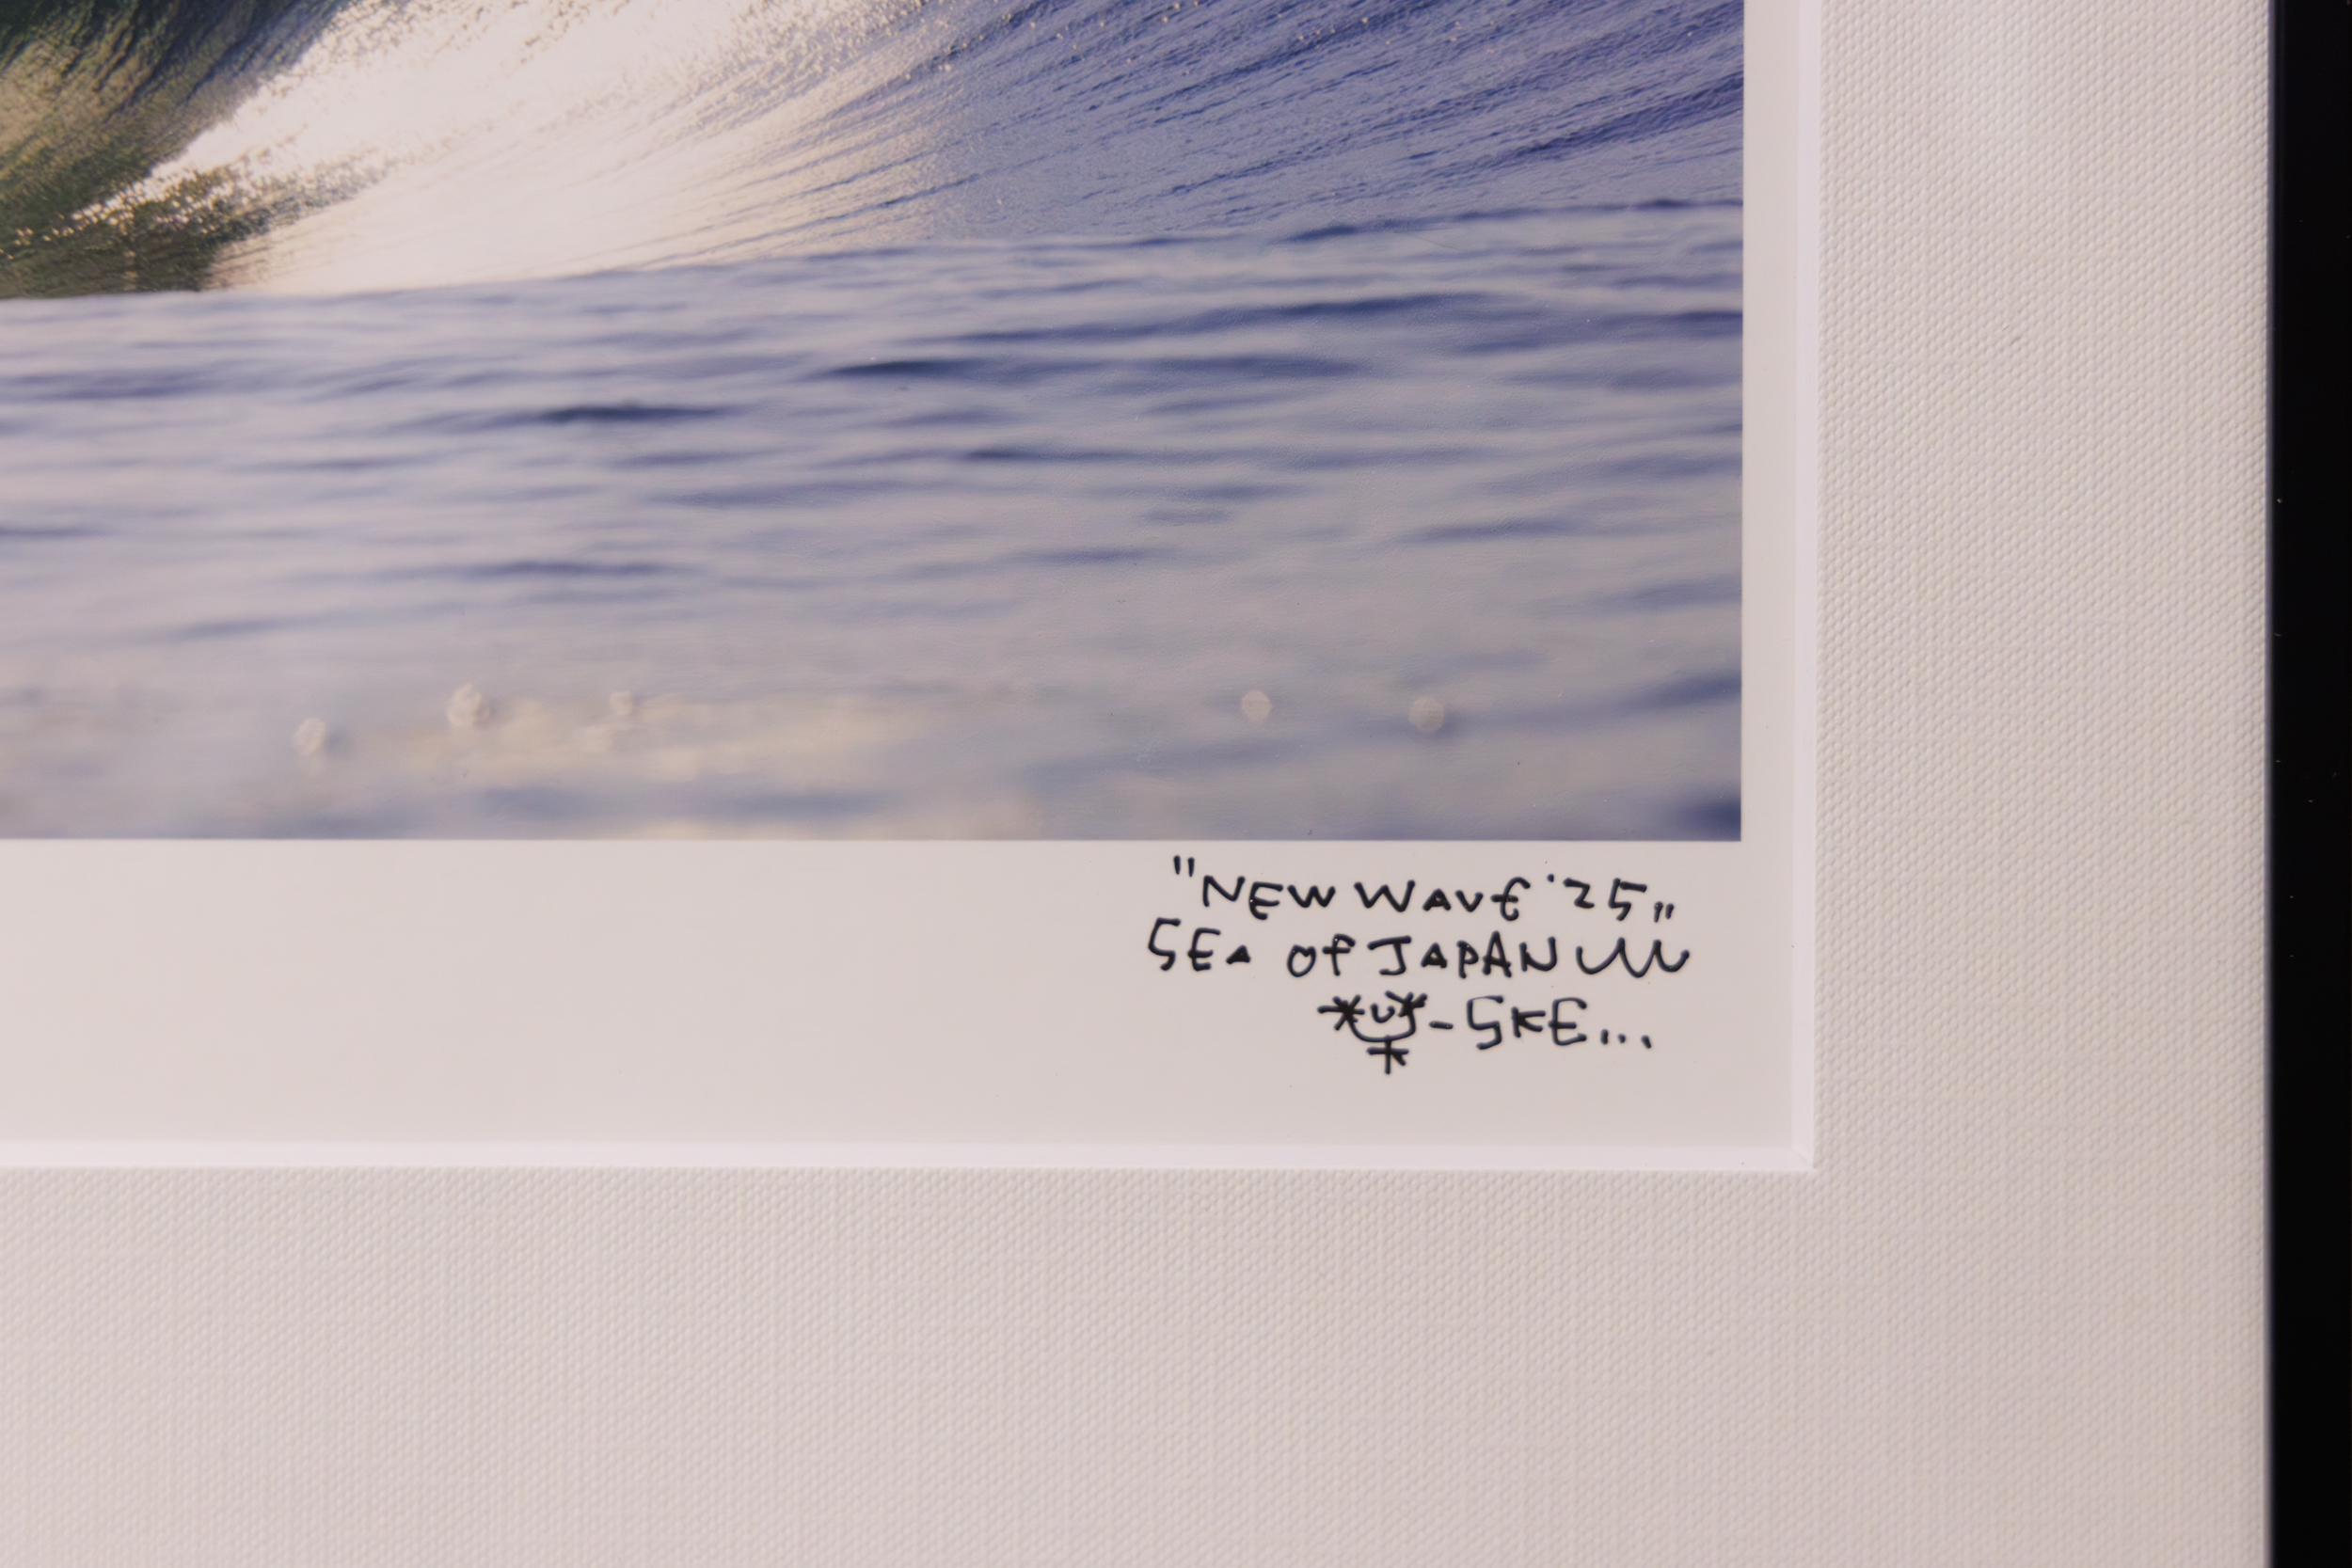 "NEW WAVE '25"
SEA OF JAPAN
-SKE...